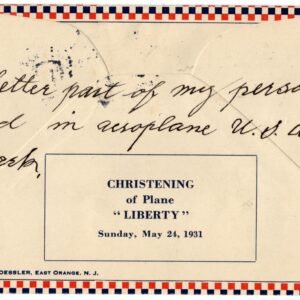 letter part of my perso
d in aeroplane U.S.A
CHRISTENING
of Plane
"LIBERTY"
Sunday, May 24, 1931
OESSLER, EAST ORANGE, N. J.